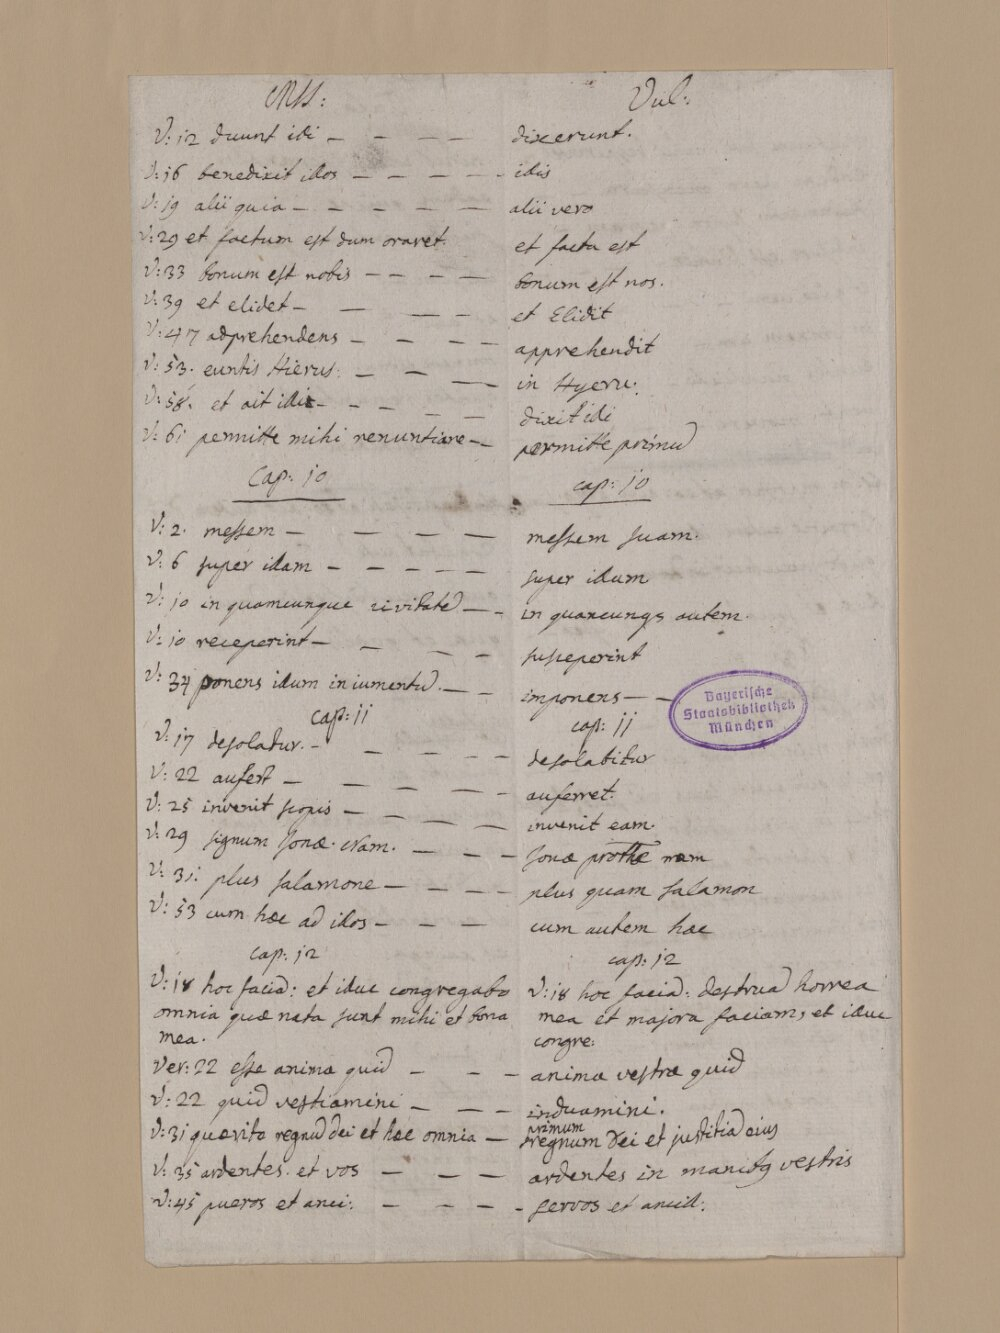 MSS: Vul:
V: 12 duunt idi — — — — dixerunt.
V: 16 benedixit illos — — — — — idis
V: 19 alii quia — — — — — — alii vero
V: 29 et factum est dum oraret. et facta est
V: 33 bonum est nobis — — — — bonum est nos.
V: 39 et elidet — — — — et Elidit
V: 47 adprehendens — — — — — apprehendit
V: 53. euntis Hierus: — — — — in Hyeru:
V: 58. et ait idi — — — — — dixit idi
V: 61 permitte mihi renuntiare — — permitte primu
Cap: 10 cap: 10
V: 2. messem — — — — messem suam.
V: 6 super idam — — — — — super idum
V: 10 in quamcunque civitate — — in quamcunq; autem.
V: 10 receperint — — — — susceperint
V: 34 ponens idum in iumentu. — — imponens — —
cap: 11 cap: 11
V: 17 desoladur. — — — — — desolabitur
V: 22 aufert — — — — — auferret.
V: 25 invenit scopis — — — — — invenit eam.
V: 29 signum Jonæ. Nam. — — — Jonæ prothe nam
V: 31: plus salamone — — — — — plus quam salamon
V: 53 cum hæc ad illos — — — cum autem hæc
cap: 12 cap: 12
V: 18 hoc facia: et iduc congregabo V: 18 hoc facia: destrua horrea
omnia quæ nata sunt mihi et bona mea et majora faciam, et iduc
mea. congre:
Ver: 22 esse anima quid — — — animæ vestræ quid
V: 22 quid vestiamini — — — induamini.
primum
V: 31 quærite regnu dei et hæc omnia — regnum Dei et justitia eius
V: 35 ardentes. et vos — — — ardentes in manib9 vestris
V: 45 pueros et anci: — — — — servos et ancil:
Bayerische
Staatsbibliothek
München